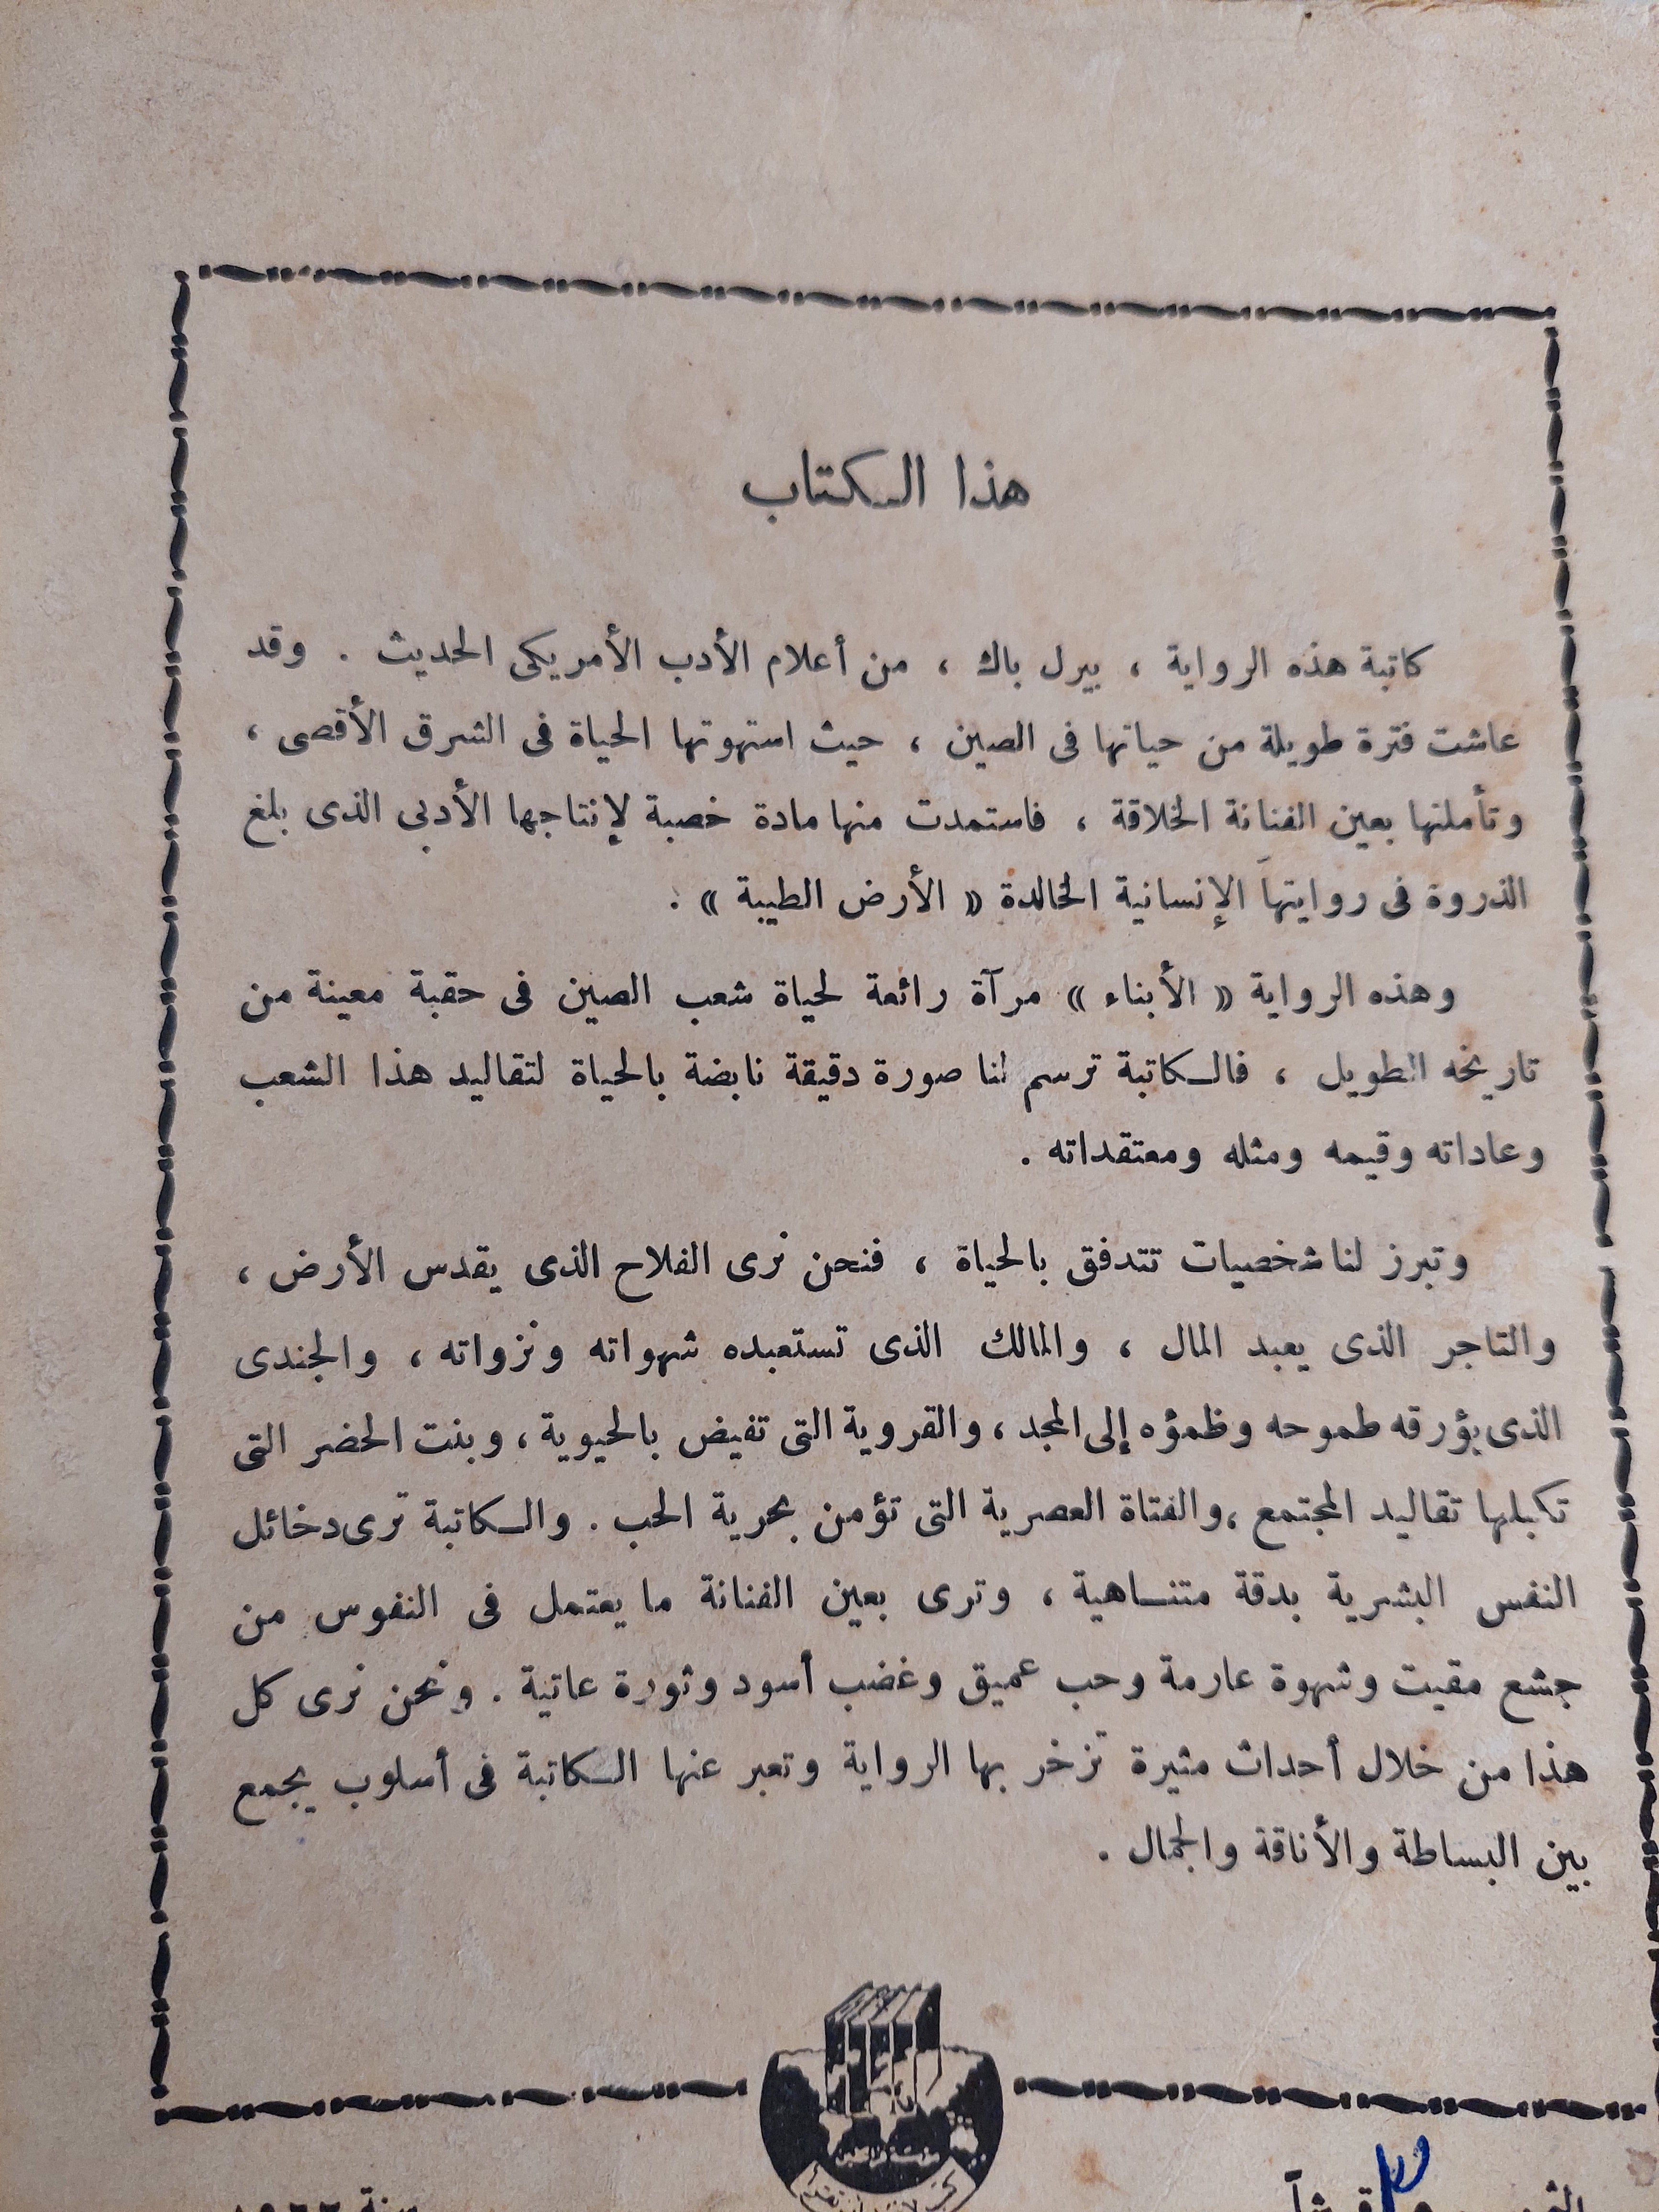 هذا الكتاب
كاتبة هذه الرواية ، بيرل باك ، من أعلام الأدب الأمريكى الحديث . وقد
عاشت فترة طويلة من حياتها فى الصين ، حيث استهوتها الحياة فى الشرق الأقصى ،
وتأملتها بعين الفنانة الخلاقة ، فاستمدت منها مادة خصبة لإنتاجها الأدبى الذى بلغ
الذروة فى روايتها الإنسانية الخالدة « الأرض الطيبة » .
وهذه الرواية « الأبناء » مرآة رائعة لحياة شعب الصين فى حقبة معينة من
تاريخه الطويل ، فالكاتبة ترسم لنا صورة دقيقة نابضة بالحياة لتقاليد هذا الشعب
وعاداته وقيمه ومثله ومعتقداته .
وتبرز لنا شخصيات تتدفق بالحياة ، فنحن نرى الفلاح الذى يقدس الأرض ،
والتاجر الذى يعبد المال ، والمالك الذى تستعبده شهواته ونزواته ، والجندى
الذى يؤرقه طموحه وظمؤه إلى المجد ، والقروية التى تفيض بالحيوية ، وبنت الحضر التى
تكبلها تقاليد المجتمع ، والفتاة العصرية التى تؤمن بحرية الحب . والكاتبة ترى دخائل
النفس البشرية بدقة متناهية ، وترى بعين الفنانة ما يعتمل فى النفوس من
جشع مقيت وشهوة عارمة وحب عميق وغضب أسود وثورة عاتية . ونحن نرى كل
هذا من خلال أحداث مثيرة تزخر بها الرواية وتعبر عنها الكاتبة فى أسلوب يجمع
بين البساطة والأناقة والجمال .
سنة